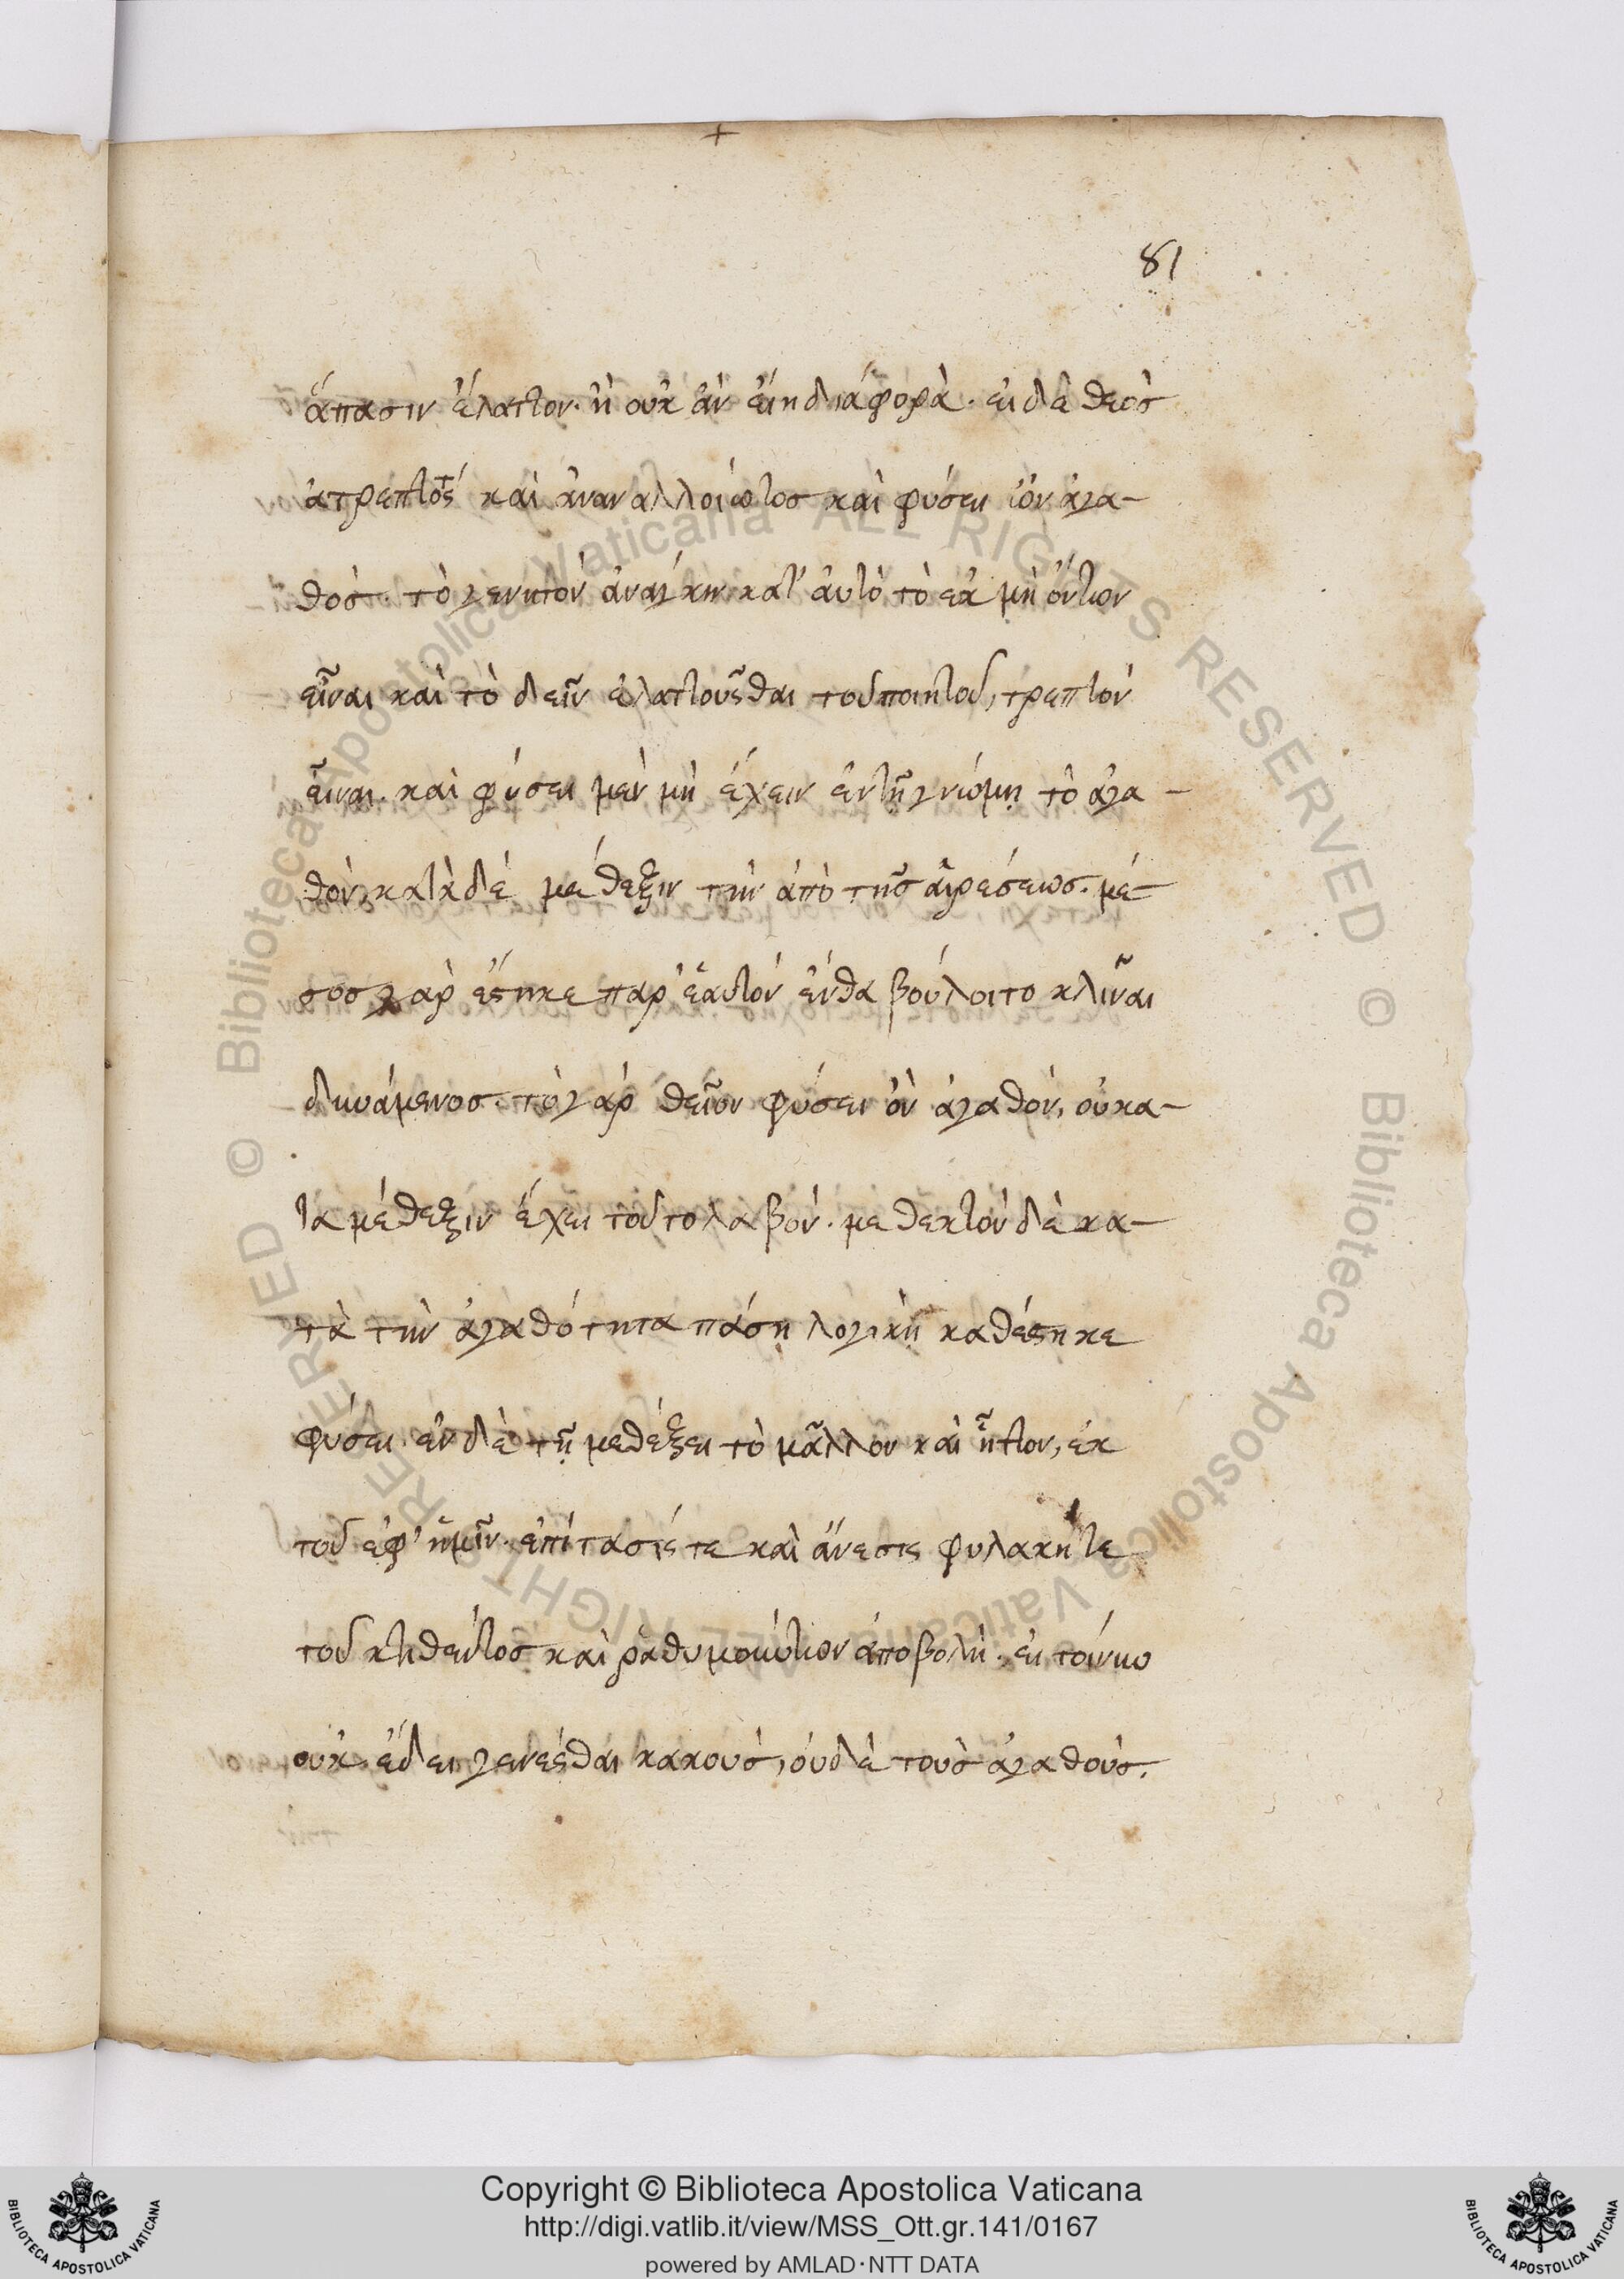 81
ἅπασιν ἔλαττον. ἢ οὐκ ἂν εἴη διάφορὰ. εἰ δὲ θεὸσ
ἄτρεπτός καὶ ἀναναλλοίωτοσ καὶ φύσει ὢν ἀγα-
θόσ. τὸ γενητὸν ἀνάγκη κατ' ἀυτὸ τὸ ἐκ μὴ ὄντων
εἶναι καὶ τὸ δεῖν ἐλαττοῦσθαι τοῦ ποιητοῦ, τρεπτὸν
εἶναι. καὶ φύσει μὲν μὴ ἔχειν ἐν τῇ γνώμῃ τὸ ἀγα-
θὸν, κατὰ δὲ μέθεξιν τὴν ἀπὸ τῆσ ἁιρέσεωσ. μέ-
σοσ γὰρ ἕστηκε παρ' ἑαυτὸν ἔνθα βούλοιτο κλῖναι
δυνάμενοσ. τὸ γὰρ θεῖον φύσει ὂν ἀγαθὸν, οὐ κα-
τα μέθεξιν ἔχει τοῦτο λαβὸν. μεθεκτὸν δὲ κα-
τὰ τὴν ἀγαθότητα πάσῃ λογικῇ καθέστηκε
φύσει. ἐν δὲ τῇ μεθέξει τὸ μᾶλλον καὶ ἧττον, ἐκ
τοῦ ἐφ' ἡμῖν. ἐπίτασίς τε καὶ ἄνεσις φυλακή τε
τοῦ κτηθέντοσ καὶ ῥαθυμούντων ἀποβολὴ. εἰ τοίνυν
οὐκ ἔδει γενέσθαι κακοὺσ, ὀυδὲ τοὺσ ἀγαθοὺσ.
Copyright © Biblioteca Apostolica Vaticana
http://digi.vatlib.it/view/MSS_Ott.gr.141/0167
powered by AMLAD·NTT DATA
BIBLIOTECA APOSTOLICA VATICANA
BIBLIOTECA APOSTOLICA VATICANA
© Biblioteca Apostolica Vaticana ALL RIGHTS RESERVED © Biblioteca Apostolica Vaticana ALL RIGHTS RESERVED